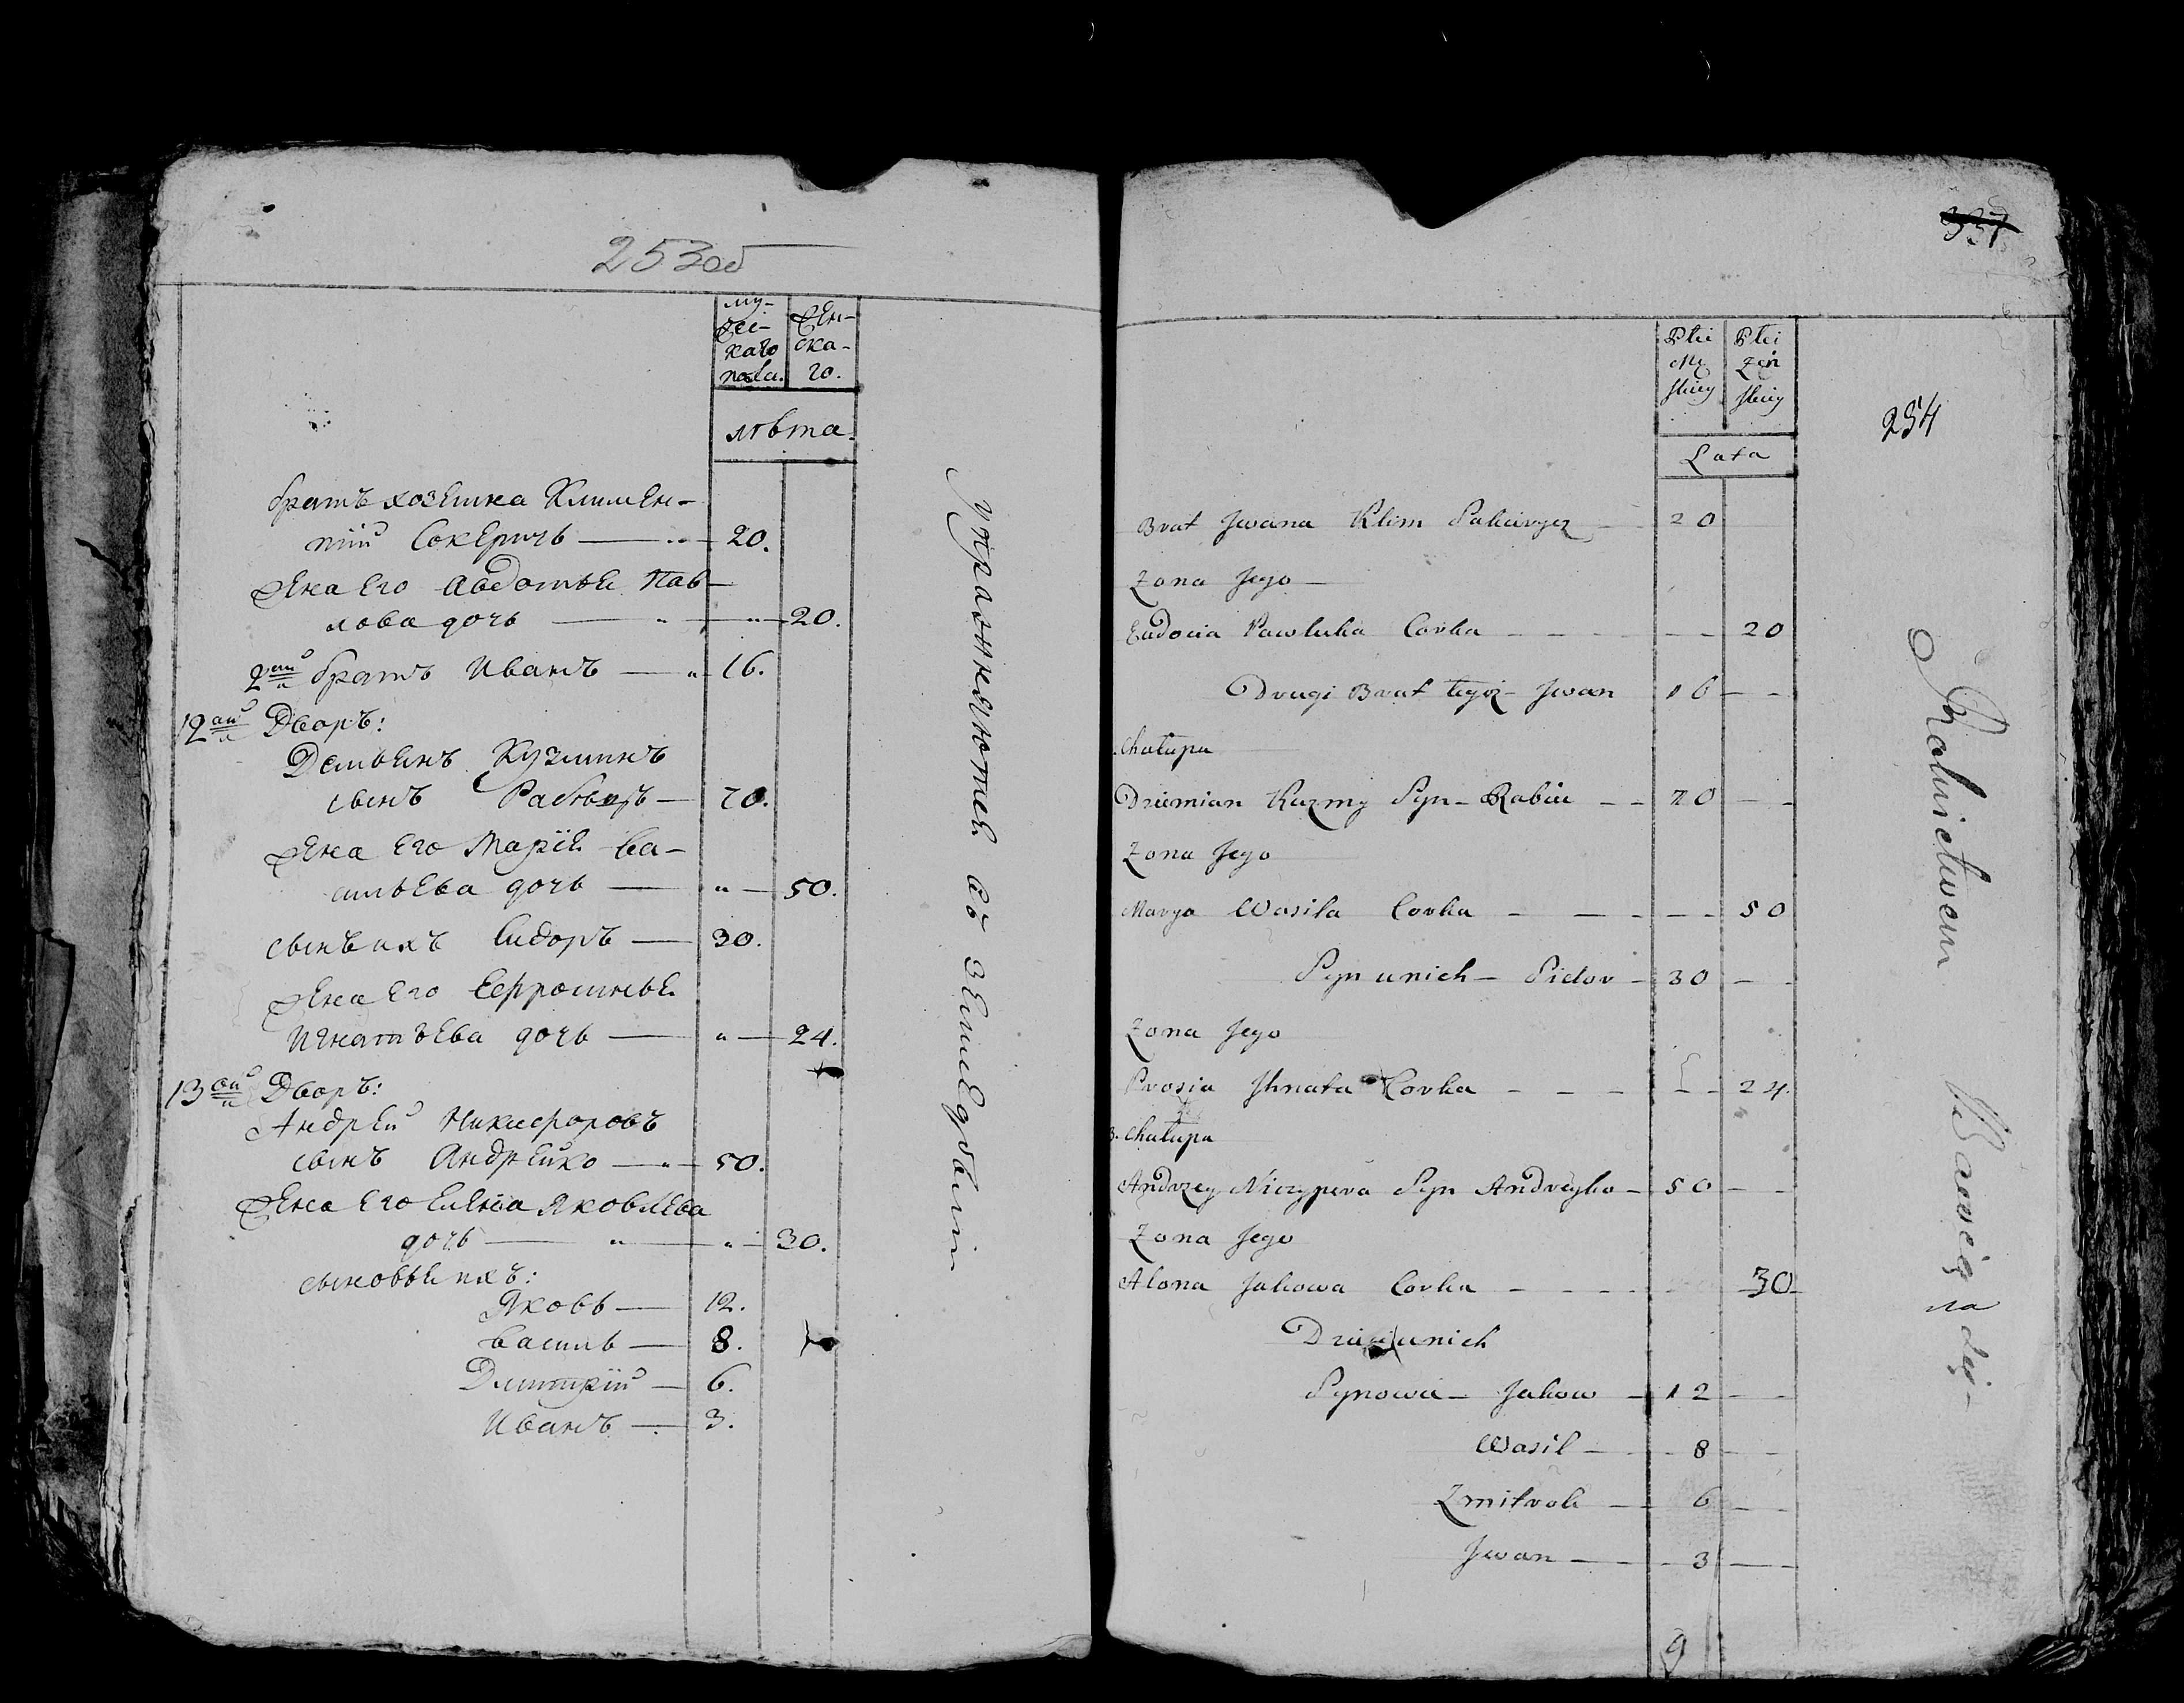 253об
му-
жес-
каго
пола.
жен-
ска-
го.
лѣта.
братъ хозеина Климен-
тий Сокеричь — 20.
жена его Авдотье Пав-
лова дочь — " — 20.
2ой братъ Иванъ — 16.
12ой Дворъ:
Демьенъ Кузминъ
сынъ — 70.
жена его Марiе Ва-
сильева дочь — " — 50.
сынъ ихъ Сидоръ — 30.
жена его Ефросинье
Игнатьева дочь — " — 24.
13ой Дворъ:
Андрей Никифоровъ
сынъ Андрейко — 50.
жена его Елена Яковлева
дочь — " — " — 30.
сыновье ихъ:
Яковъ — 12.
Василь — 8.
Дмитрiй — 6.
Иванъ — 3.
упражняютсе въ земледѣлии
337
254
Płci
Mę
skiey
Płci
Żeń
skiey
Lata
Brat Jwana Klim — 20
Zona Jego —
Eudocia Pawluka Corka — — — 20
Drugi Brat tegoż Jwan 16 — —
Chałupa
Dziemian Kuzmy Syn — — 70 — —
Zona Jego
Marya Wasila Corka — — — 50
Syn u nich — Sidor — 30 — —
Zona Jego
Prosia Jhnata Corka — — — 24.
3. Chałupa
Andrzey Niczypera Syn Andreyko — 50 — —
Zona Jego
Alona Jakowa Corka — — — 30
Dzieci u nich
Synowie — Jakow — 12 — —
Wasil — 8 — —
Zmitrok — 6 — —
Jwan — 3 — —
9
Rolnictwem